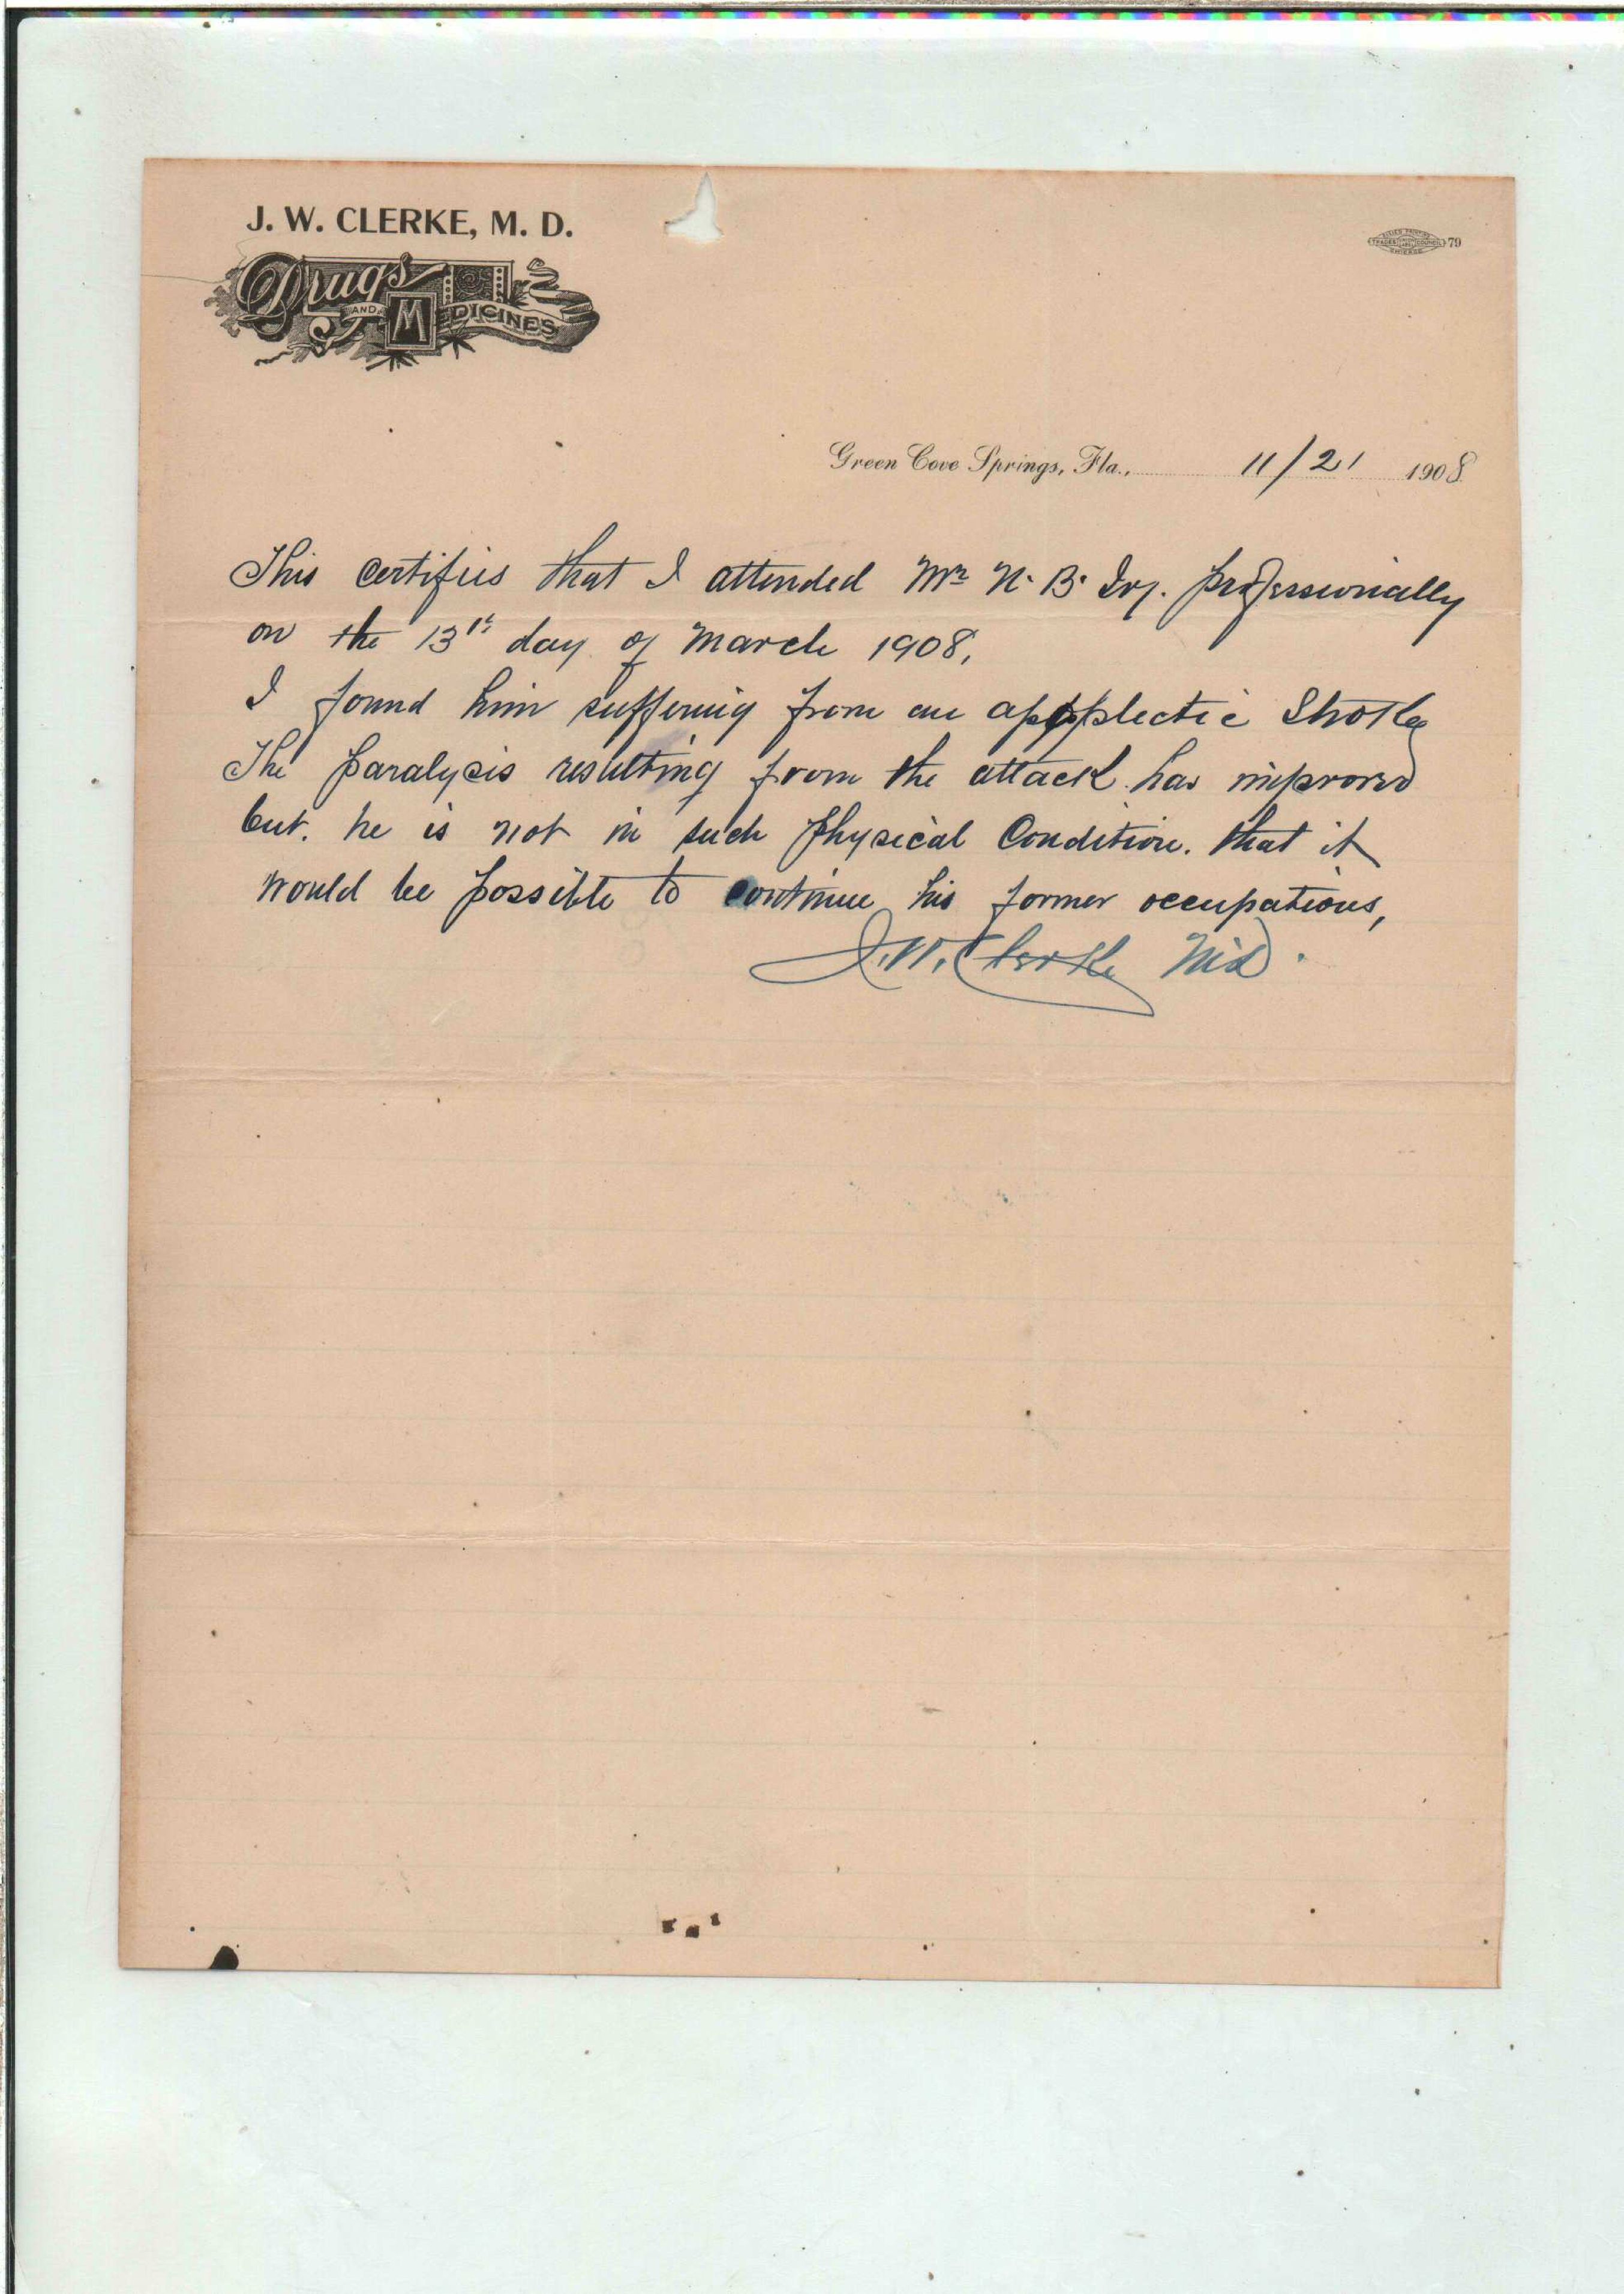 J. W. CLERKE, M. D.
Drugs AND MEDICINES
79
Green Cove Springs, Fla., 11/21 1908
This certifies that I attended Mr N. B. Ivy. professionally
on the 13th day of March 1908,
I found him suffering from an appoplectic Stroke
The paralysis resulting from the attack has improved
but. he is not in such physical Condition. that it
would be possible to continue his former occupations,
J. W. Clerke M.D.